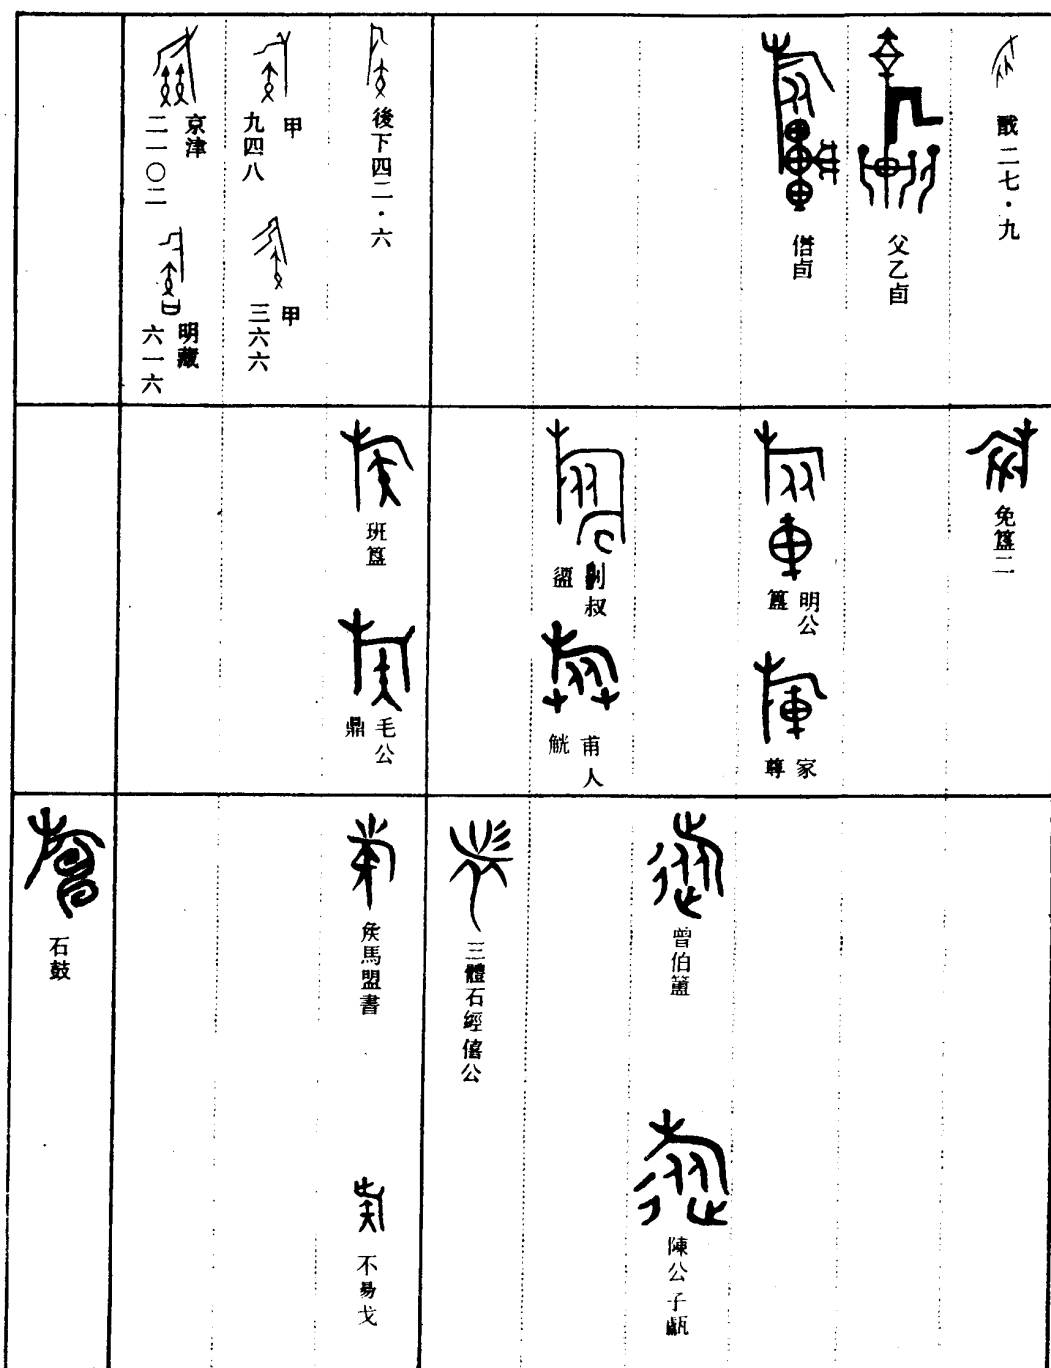 戩二七·九
父乙卣
僭卣
後下四二·六
甲
九四八
甲
三六六
京津
二一〇二
明藏
六一六
免簋二
明公
簋
家
尊
叔
甫人
觥
班簋
毛公
鼎
曾伯簠
陳公子甗
三體石經僖公
侯馬盟書
不昜戈
石鼓